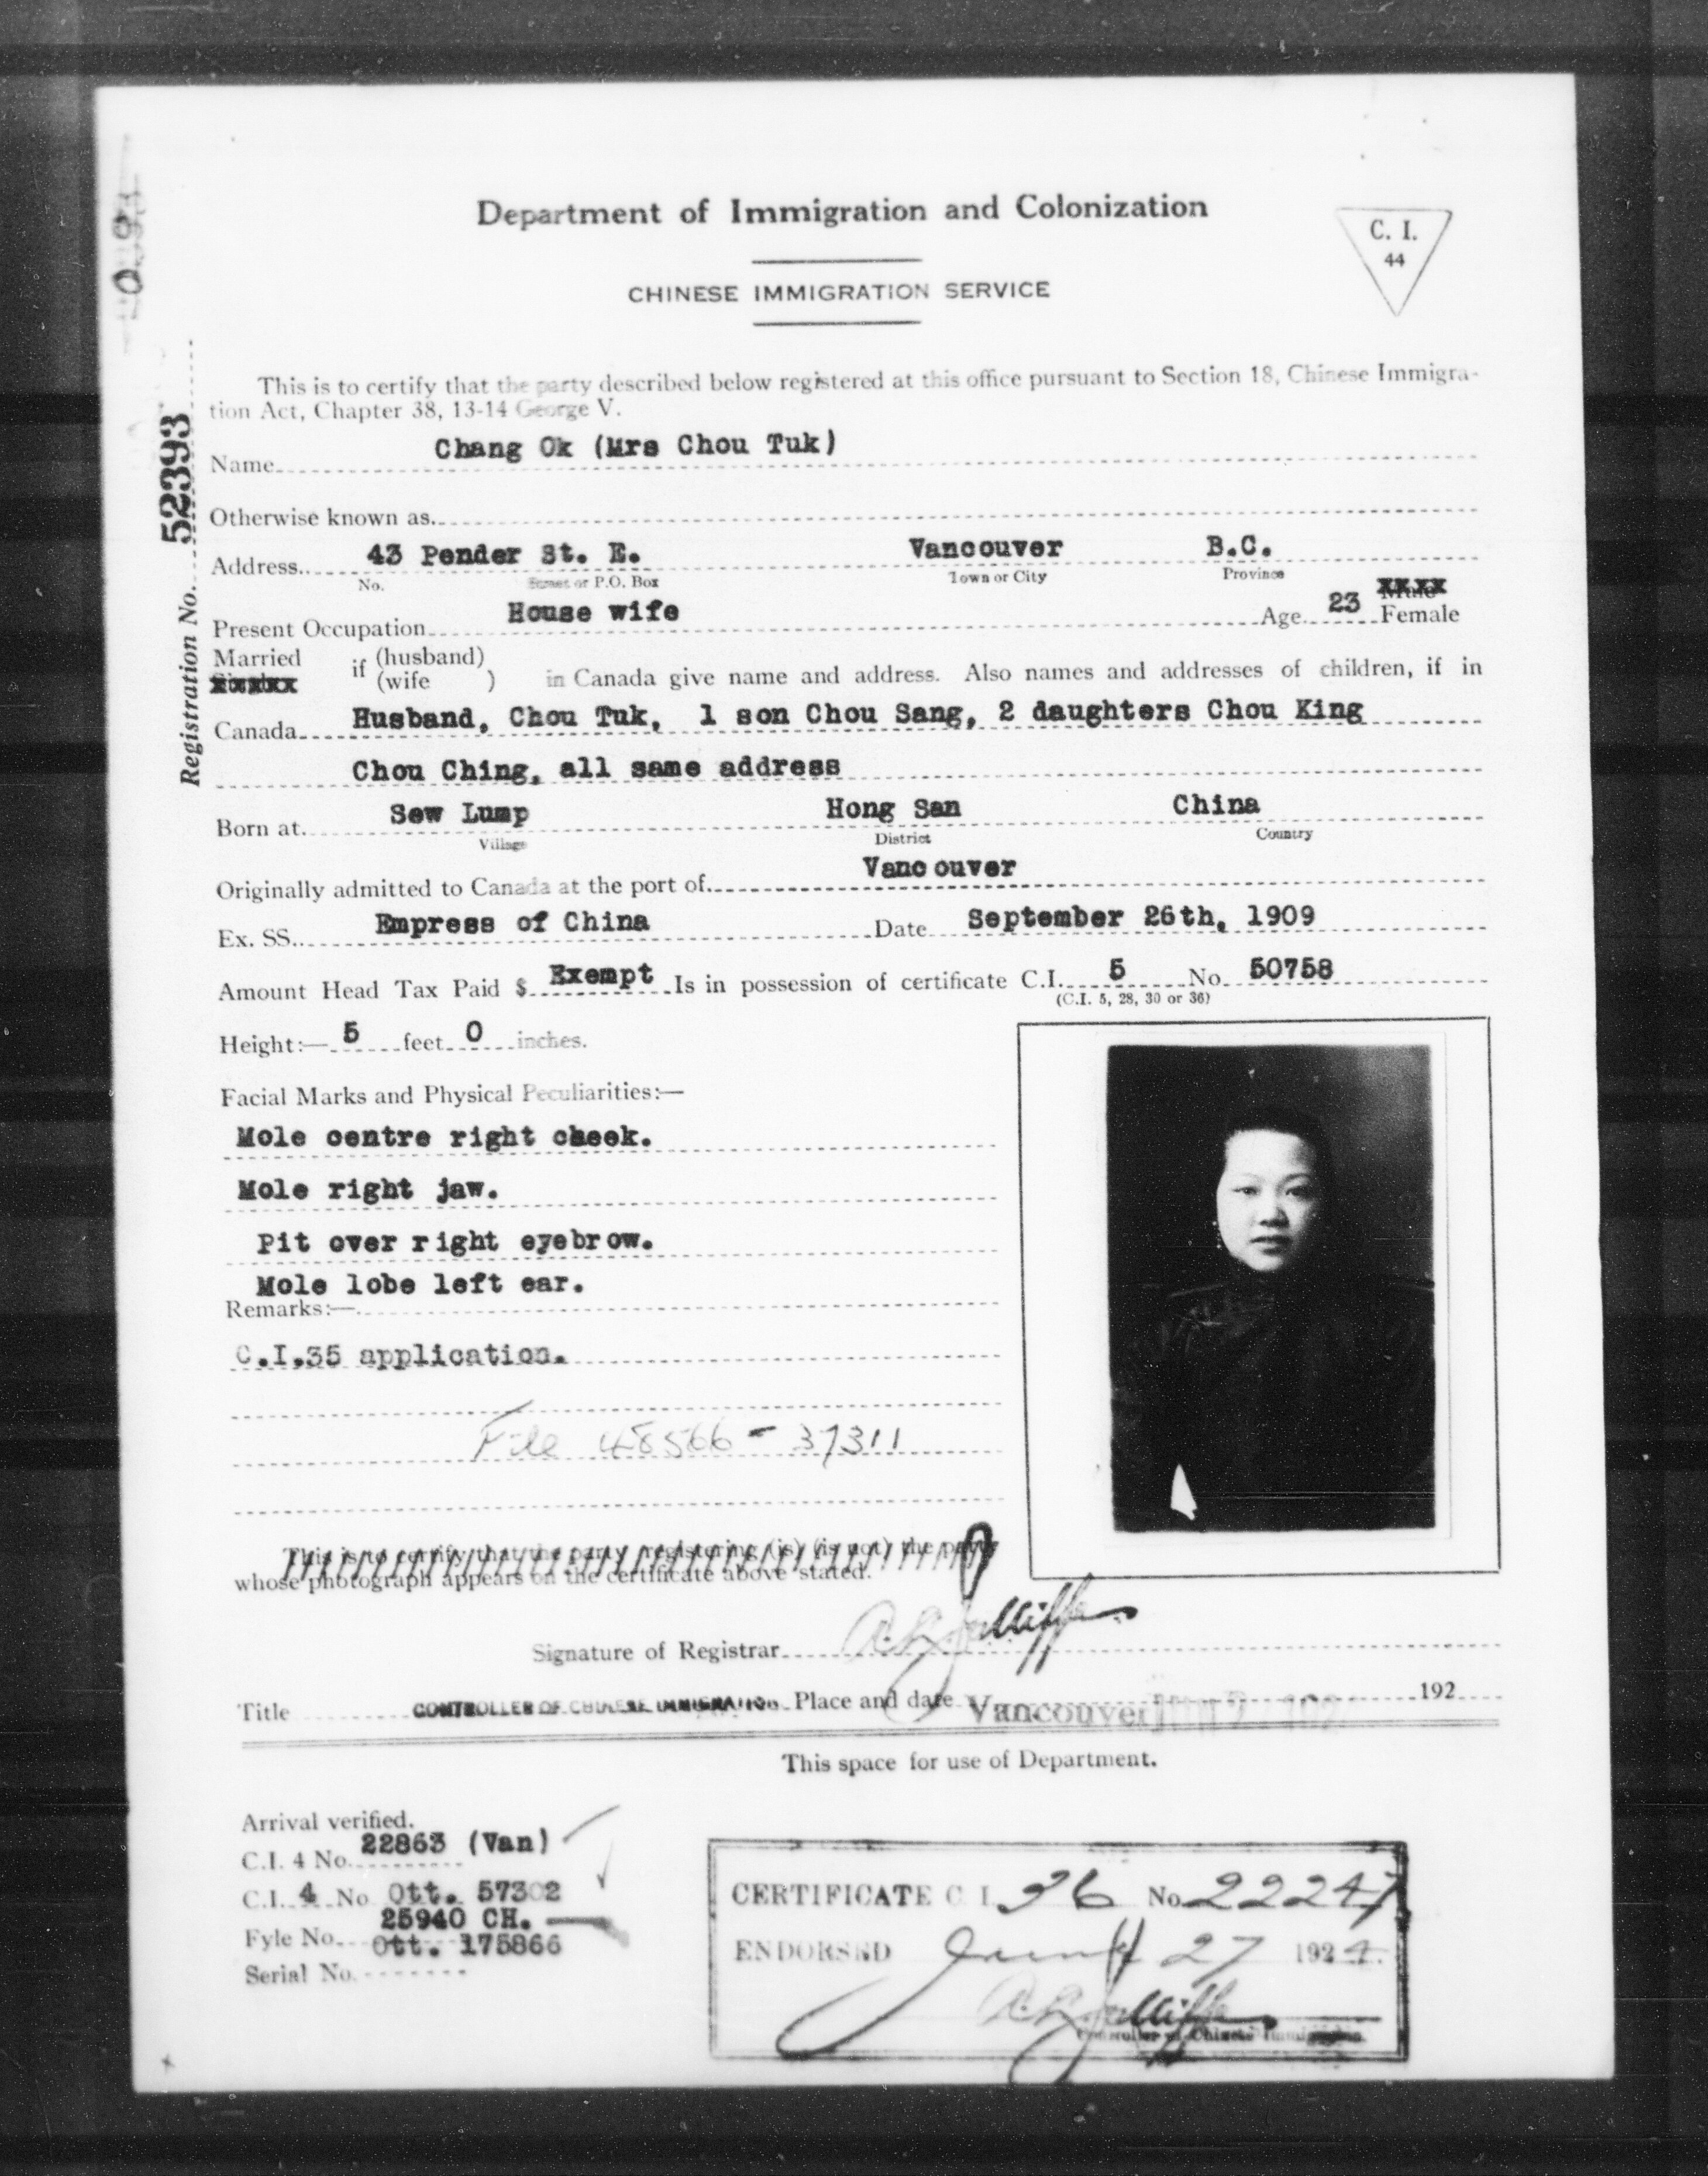 Department of Immigration and Colonization
C. I.
44
CHINESE IMMIGRATION SERVICE
This is to certify that the party described below registered at this office pursuant to Section 18, Chinese Immigra-
tion Act, Chapter 38, 13-14 George V.
Registration No. 52393
Name Chang Ok (Mrs Chou Tuk)
Otherwise known as
Address 43 Pender St. E. Vancouver B.C.
No. Street or P.O. Box Town or City Province
Present Occupation House wife Age 23 Female
Married if (husband)
(wife ) in Canada give name and address. Also names and addresses of children, if in
Canada Husband, Chou Tuk, 1 son Chou Sang, 2 daughters Chou King
Chou Ching, all same address
Born at Sew Lump Hong San China
Village District Country
Originally admitted to Canada at the port of Vancouver
Ex. SS. Empress of China Date September 26th, 1909
Amount Head Tax Paid $ Exempt Is in possession of certificate C.I. 5 No. 50758
(C.I. 5, 28, 30 or 36)
Height:— 5 feet 0 inches.
Facial Marks and Physical Peculiarities:—
Mole centre right cheek.
Mole right jaw.
Pit over right eyebrow.
Mole lobe left ear.
Remarks:—
C.I.35 application.
File 48566 - 37311
This is to certify that the party registering (is) (is not) the party
whose photograph appears on the certificate above stated.
Signature of Registrar
Title CONTROLLER OF CHINESE IMMIGRATION Place and date Vancouver 192
This space for use of Department.
Arrival verified.
C.I. 4 No. 22863 (Van)
C.I. 4 No Ott. 57302
25940 CH.
Fyle No. Ott. 175866
Serial No.
CERTIFICATE C.I. 36 No. 22247
ENDORSED 27 1924.
Controller of Chinese Immigration